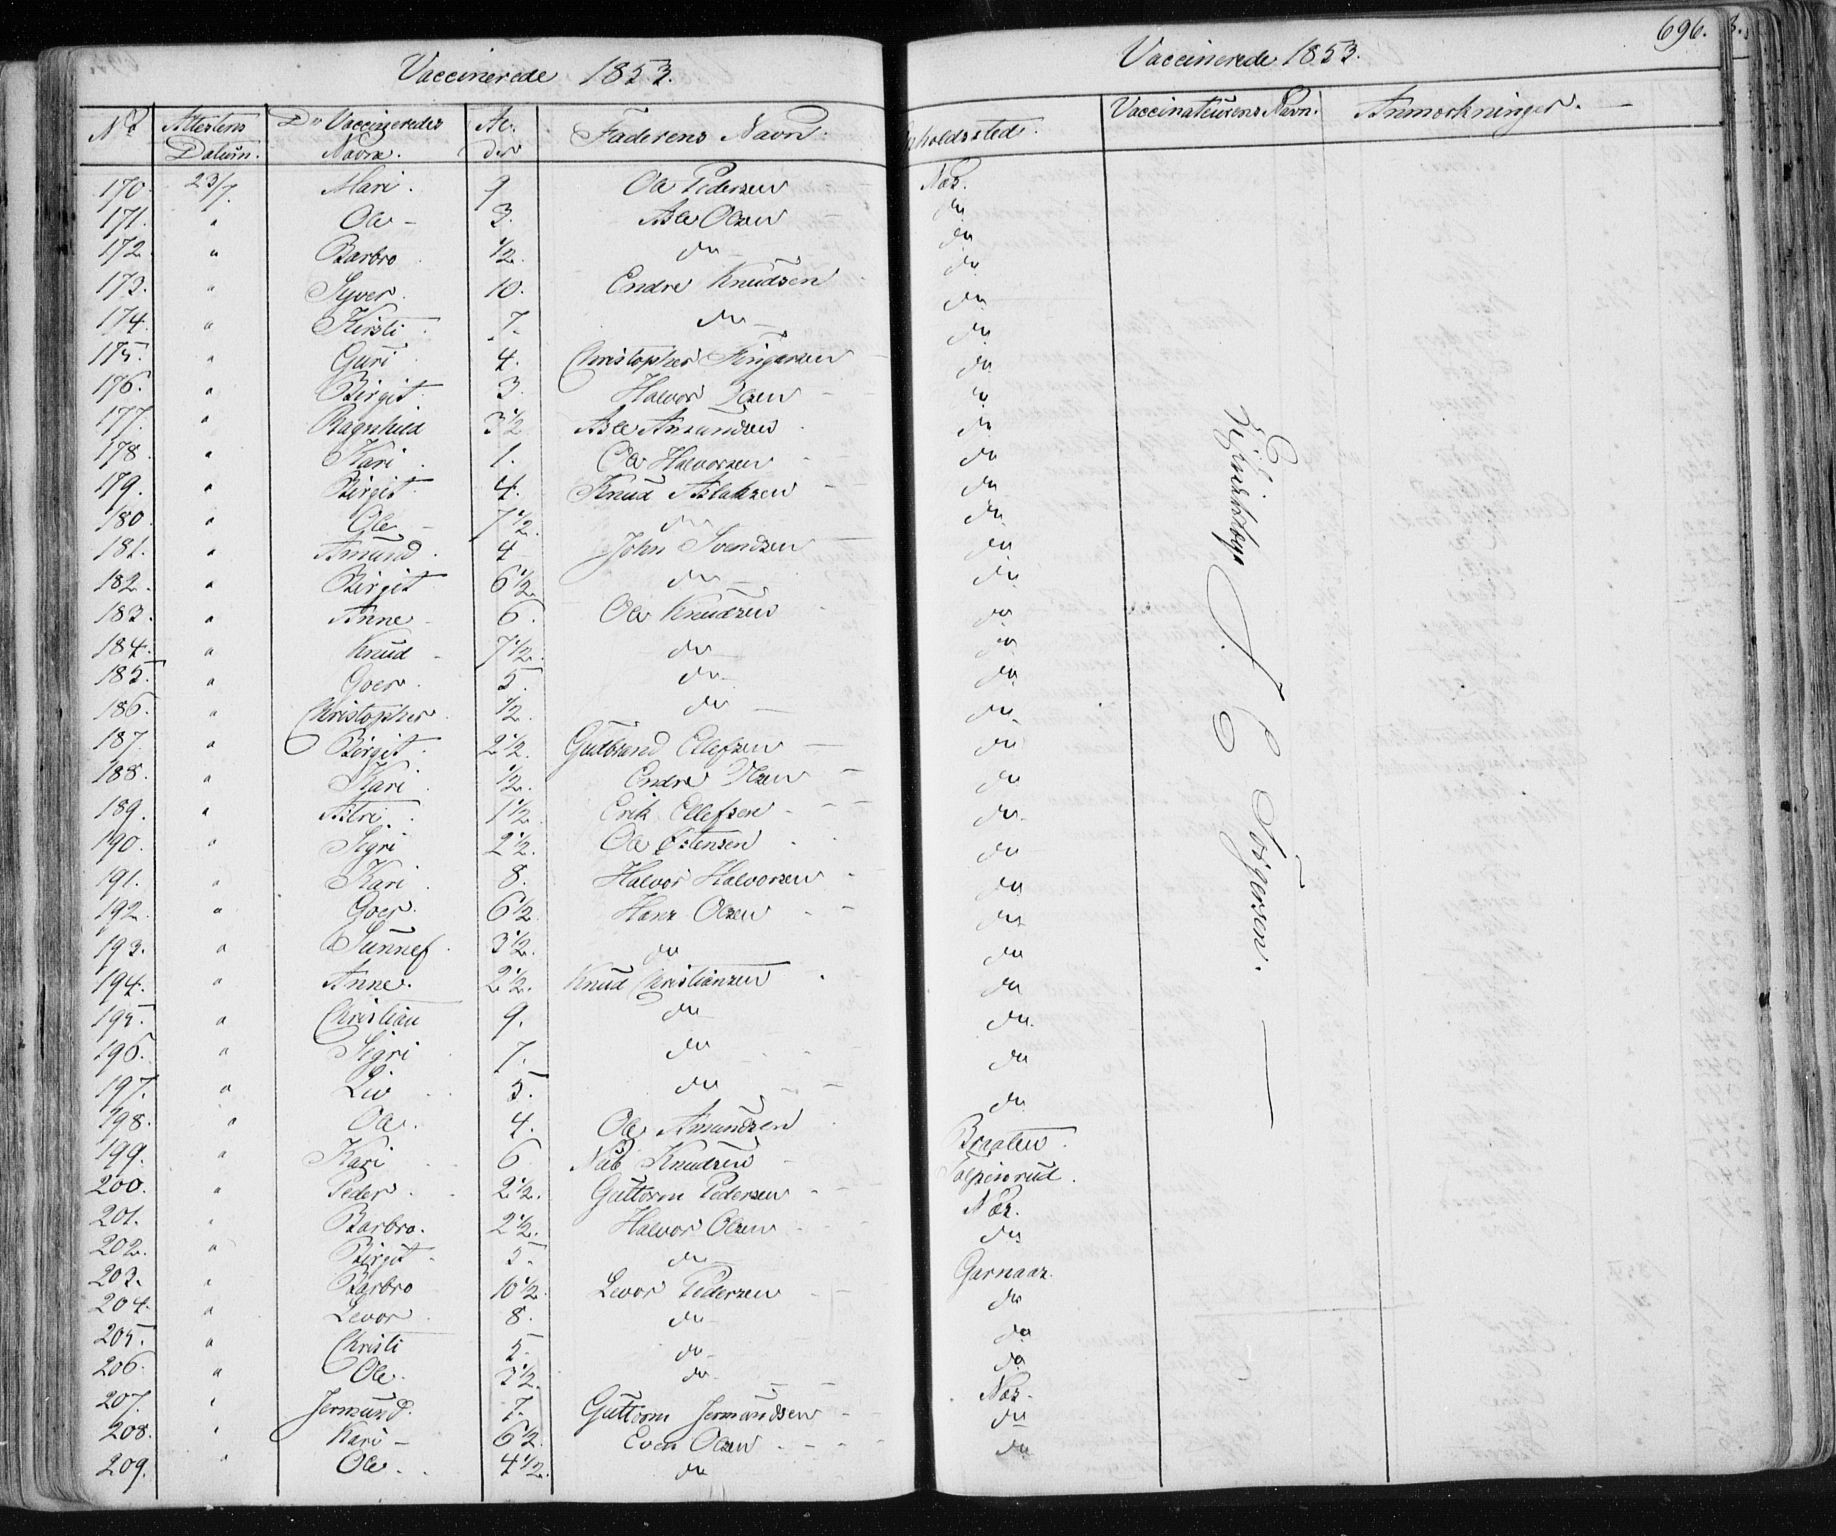 696.
Vaccinerede 1853. Vaccinerede 1853.
No Attestens Datum. De Vaccineredes Navne. Al- der Faderens Navn. Opholdssted. Vaccinateurens Navn. Anmærkninger.
170. 23/7. Mari. 9 Ole Pedersen Næs.
171. " Ole 3. Asle Olsen do
172. " Barbro 1/2. do do
173. " Syver. 10. Endre Knudsen do
174. " Kirsti. 7. do do
175. " Guri 4. Christopher do
176. " Birgit. 3. Halvor Olsen do
177. " Ragnhild 3 1/2 Asle Amundsen do
178. " Kari. 1. Ole Halvorsen do
179. " Birgit. 4. Knud Aslaksen do
180. " Ole 7 1/2. do do
181. " Amund. 4 John Svendsen do
182. " Birgit 6 1/2. do do
183. " Anne 6. Ole Knudsen do
184. " Knud 7 1/2. do do
185. " Goer. 5. do do
186. " Christopher. 1/2. do do
187. " Birgit. 2 1/2. Gulbrand Ellefsen do
188. " Kari 1/2. Endre Olsen do
189. " Astri. 1 1/2. Erik Ellefsen do
190. " Sigri 2 1/2. Ole Østensen do
191. " Kari. 8. Halvor Halvorsen do
192. " Goer. 6 1/2. Hans Olsen do
193. " Sunnef. 3 1/2. do do
194. " Anne. 2 1/2. Knud Christiansen do
195. " Christian 9. do do
196. " Sigri 7. do do
197. " Liv 5. do do
198. " Ole. 4. Ole Amundsen Braaten.
199. " Kari 6 Nub Knudsen
200. " Peder. 2 1/2. Guttorm Pedersen Næs.
201. " Barbro. 2 1/2. Halvor Olsen do
202. " Birgit. 5. do
203. " Barbro 10 1/2. Levor Pedersen Garnaas.
204. " Levor. 8. do do
205. " Christi 5. do do
206. " Ole. 3 1/2. do do
207. " Jermund. 7. Guttorm Jermundsen Næs.
208. " Kari 6 1/2. Even Olsen do
209. " Ole. 4 1/2. do do
Torgersen.